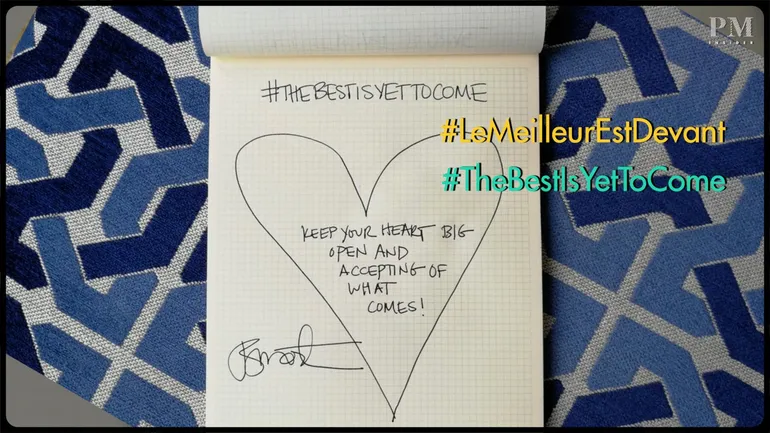 PM
INSIDER
#THEBESTISYETTOCOME
#LeMeilleurEstDevant
#TheBestIsYetToCome
KEEP YOUR HEART BIG
OPEN AND
ACCEPTING OF
WHAT
COMES!